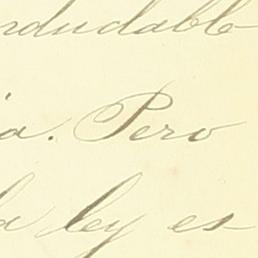 indudable
ia. Pero
la ley es